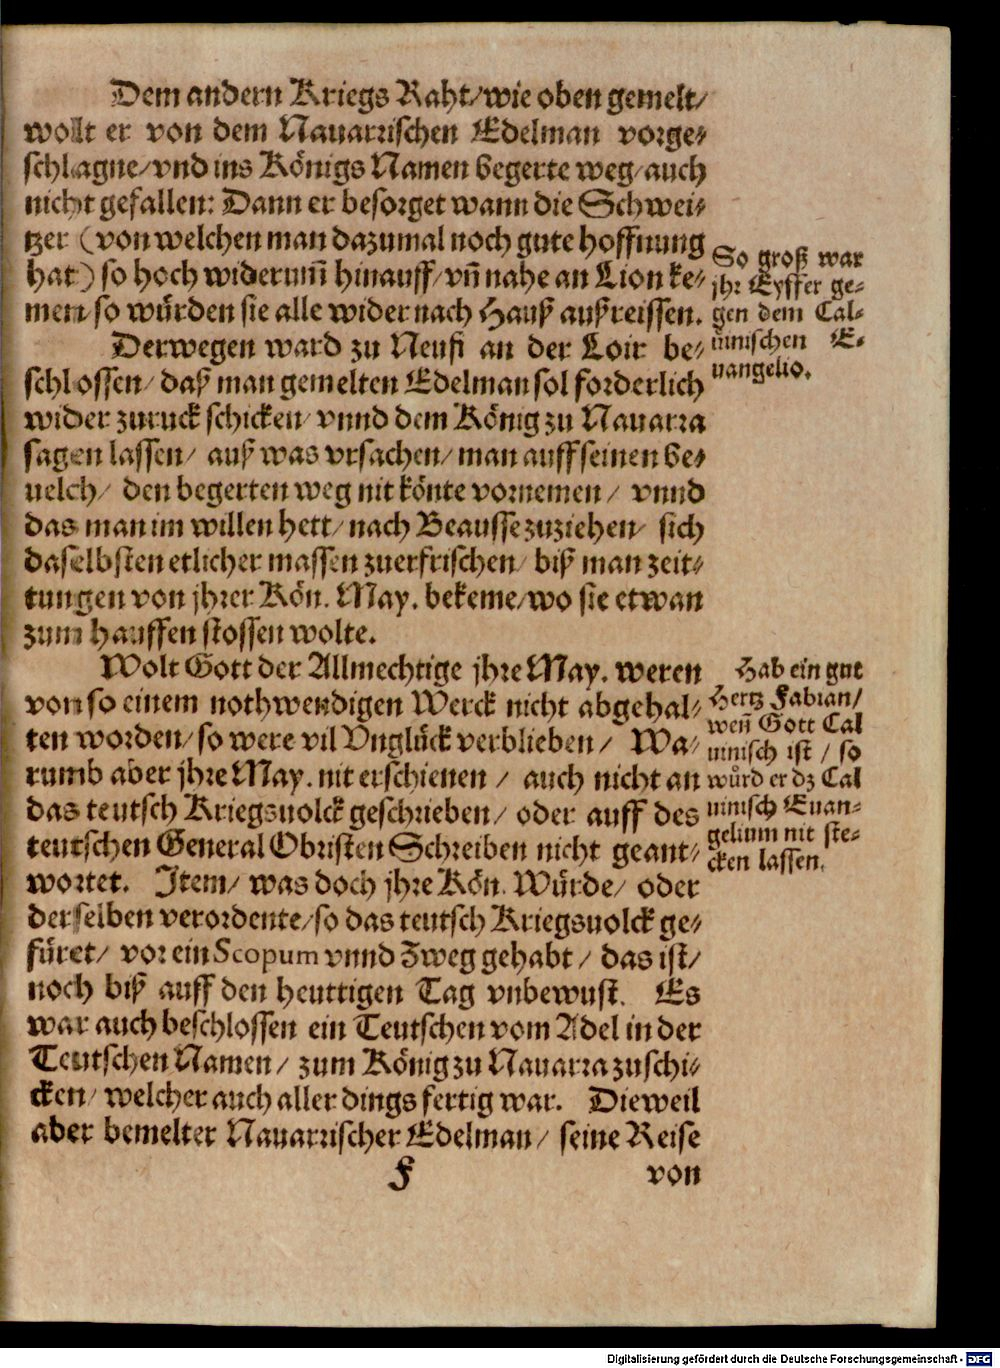 Dem andern Kriegs Raht/wie oben gemelt/
wollt er von dem Nauarrischen Edelman vorge-
schlagne/vnd ins Königs Namen begerte weg/auch
nicht gefallen: Dann er besorget wann die Schwei-
tzer (von welchen man dazumal noch gute hoffnung
hat) so hoch widerum̃ hinauff/vñ nahe an Lion ke-
men/so würden sie alle wider nach Hauß außreissen.
Derwegen ward zu Neufi an der Loir be-
schlossen/daß man gemelten Edelman sol forderlich
wider zuruck schicken/vnnd dem König zu Nauarra
sagen lassen/ auß was vrsachen/man auff seinen be-
uelch/ den begerten weg nit könte vornemen/ vnnd
das man im willen hett/nach Beausse zuziehen/ sich
daselbsten etlicher massen zuerfrischen/ biß man zeit-
tungen von jhrer Kön. May. bekeme/wo sie etwan
zum hauffen stossen wolte.
Wolt Gott der Allmechtige jhre May. weren
von so einem nothwendigen Werck nicht abgehal-
ten worden/so were vil Vnglück verblieben/ Wa-
rumb aber jhre May. nit erschienen/ auch nicht an
das teutsch Kriegsuolck geschrieben/ oder auff des
teutschen General Obristen Schreiben nicht geant-
wortet. Item/ was doch jhre Kön. Würde/ oder
derselben verordente/so das teutsch Kriegsuolck ge-
füret/ vor ein Scopum vnnd Zweg gehabt/ das ist/
noch biß auff den heuttigen Tag vnbewust. Es
war auch beschlossen ein Teutschen vom Adel in der
Teutschen Namen/ zum König zu Nauarra zuschi-
cken/ welcher auch aller dings fertig war. Dieweil
aber bemelter Nauarrischer Edelman/ seine Reise
F von
So groß war
jhr Eyffer ge-
gen dem Cal-
uinischen E-
uangelio.
Hab ein gut
Hertz Fabian/
weñ Gott Cal
uinisch ist/ so
wuͤrd er dz Cal
uinisch Euan-
gelium nit ste-
cken lassen.
Digitalisierung gefördert durch die Deutsche Forschungsgemeinschaft - DFG